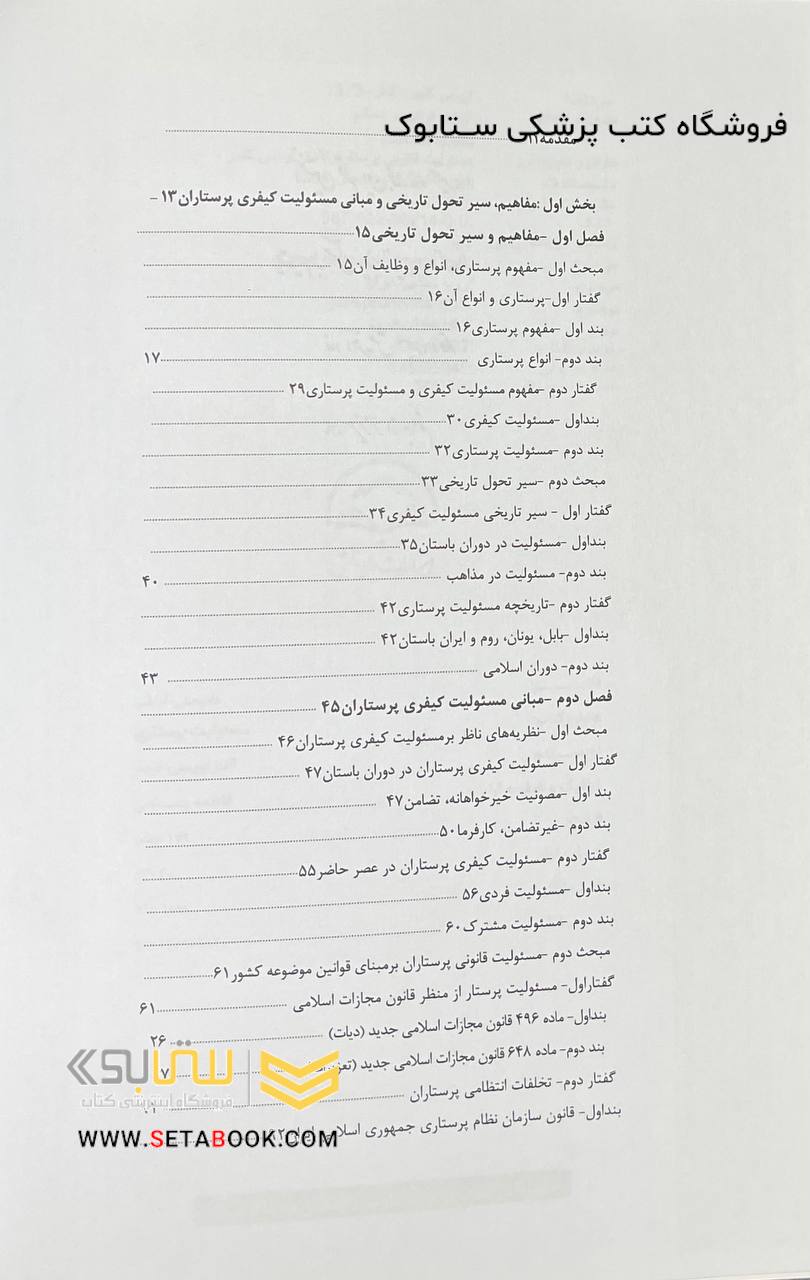 فروشگاه کتب پزشکی ستابوک
مقدمه۱۱
بخش اول :مفاهیم، سیر تحول تاریخی و مبانی مسئولیت کیفری پرستاران۱۳
فصل اول -مفاهیم و سیر تحول تاریخی۱۵
مبحث اول -مفهوم پرستاری، انواع و وظایف آن۱۵
گفتار اول-پرستاری و انواع آن۱۶
بند اول -مفهوم پرستاری۱۶
بند دوم- انواع پرستاری ۱۷
گفتار دوم -مفهوم مسئولیت کیفری و مسئولیت پرستاری۲۹
بنداول -مسئولیت کیفری۳۰
بند دوم -مسئولیت پرستاری۳۲
مبحث دوم -سیر تحول تاریخی۳۳
گفتار اول - سیر تاریخی مسئولیت کیفری۳۴
بنداول -مسئولیت در دوران باستان۳۵
بند دوم- مسئولیت در مذاهب ۴۰
گفتار دوم -تاریخچه مسئولیت پرستاری۴۲
بنداول -بابل، یونان، روم و ایران باستان۴۲
بند دوم- دوران اسلامی ۴۳
فصل دوم -مبانی مسئولیت کیفری پرستاران۴۵
مبحث اول -نظریه‌های ناظر برمسئولیت کیفری پرستاران۴۶
گفتار اول -مسئولیت کیفری پرستاران در دوران باستان۴۷
بند اول -مصونیت خیرخواهانه، تضامن۴۷
بند دوم -غیرتضامن، کارفرما۵۰
گفتار دوم -مسئولیت کیفری پرستاران در عصر حاضر۵۵
بنداول -مسئولیت فردی۵۶
بند دوم -مسئولیت مشترک۶۰
مبحث دوم -مسئولیت قانونی پرستاران برمبنای قوانین موضوعه کشور۶۱
گفتاراول- مسئولیت پرستار از منظر قانون مجازات اسلامی ۶۱
بنداول- ماده ۴۹۶ قانون مجازات اسلامی جدید (دیات) ۲۶
بند دوم- ماده ۶۴۸ قانون مجازات اسلامی جدید
گفتار دوم- تخلفات انتظامی پرستاران
بنداول- قانون سازمان نظام پرستاری جمهوری
ستابوک
فروشگاه اینترنتی کتاب
WWW.SETABOOK.COM